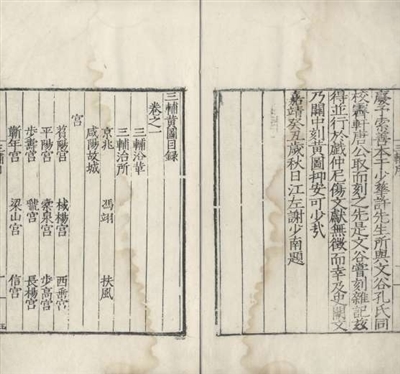 予索善本于少華許先生所與文谷孔氏同
校霽軒唐公取而刻之先是文谷嘗刻雜記茲
得並行於戲仲尼傷文獻無徵而幸及史闕文
乃關中刻黃圖抑安可少哉
嘉靖癸丑歲秋日江左謝少南題
三輔黃圖目録
卷之一
三輔沿革
三輔治所
京兆 馮翊 扶風
咸陽故城
宮
萯陽宮 棫楊宮 西垂宮
平陽宮 橐泉宮 步高宮
步壽宮 虢宮 長楊宮
蘄年宮 梁山宮 信宮